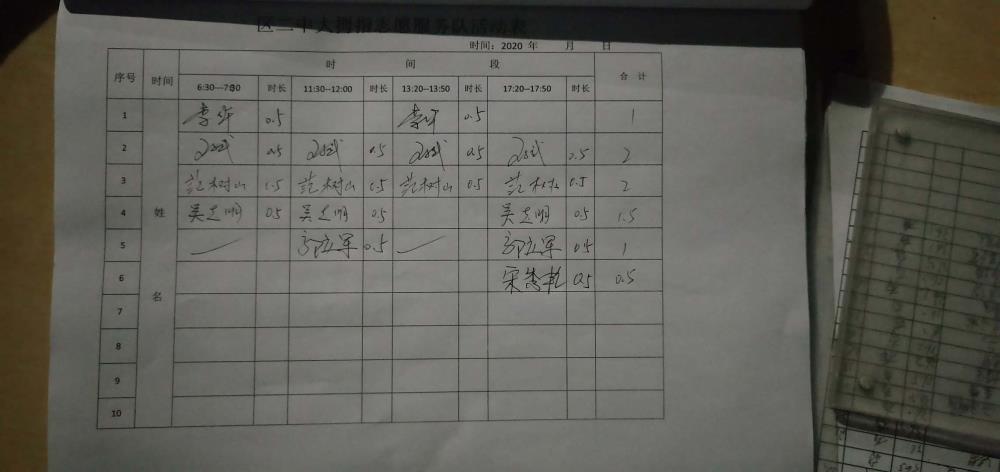 区二中大拇指志愿服务队活动表
时间：2020 年 月 日
序号 时间 时 间 段 合 计
6:30—7:30 时长 11:30—12:00 时长 13:20—13:50 时长 17:20—17:50 时长
1 李军 0.5 李军 0.5 1
2 0.5 0.5 0.5 0.5 2
3 范树山 0.5 范树山 0.5 范树山 0.5 范树山 0.5 2
4 姓 吴志明 0.5 吴志明 0.5 吴志明 0.5 1.5
5 — 郭立军 0.5 — 郭立军 0.5 1
6 名 0.5 0.5
7
8
9
10